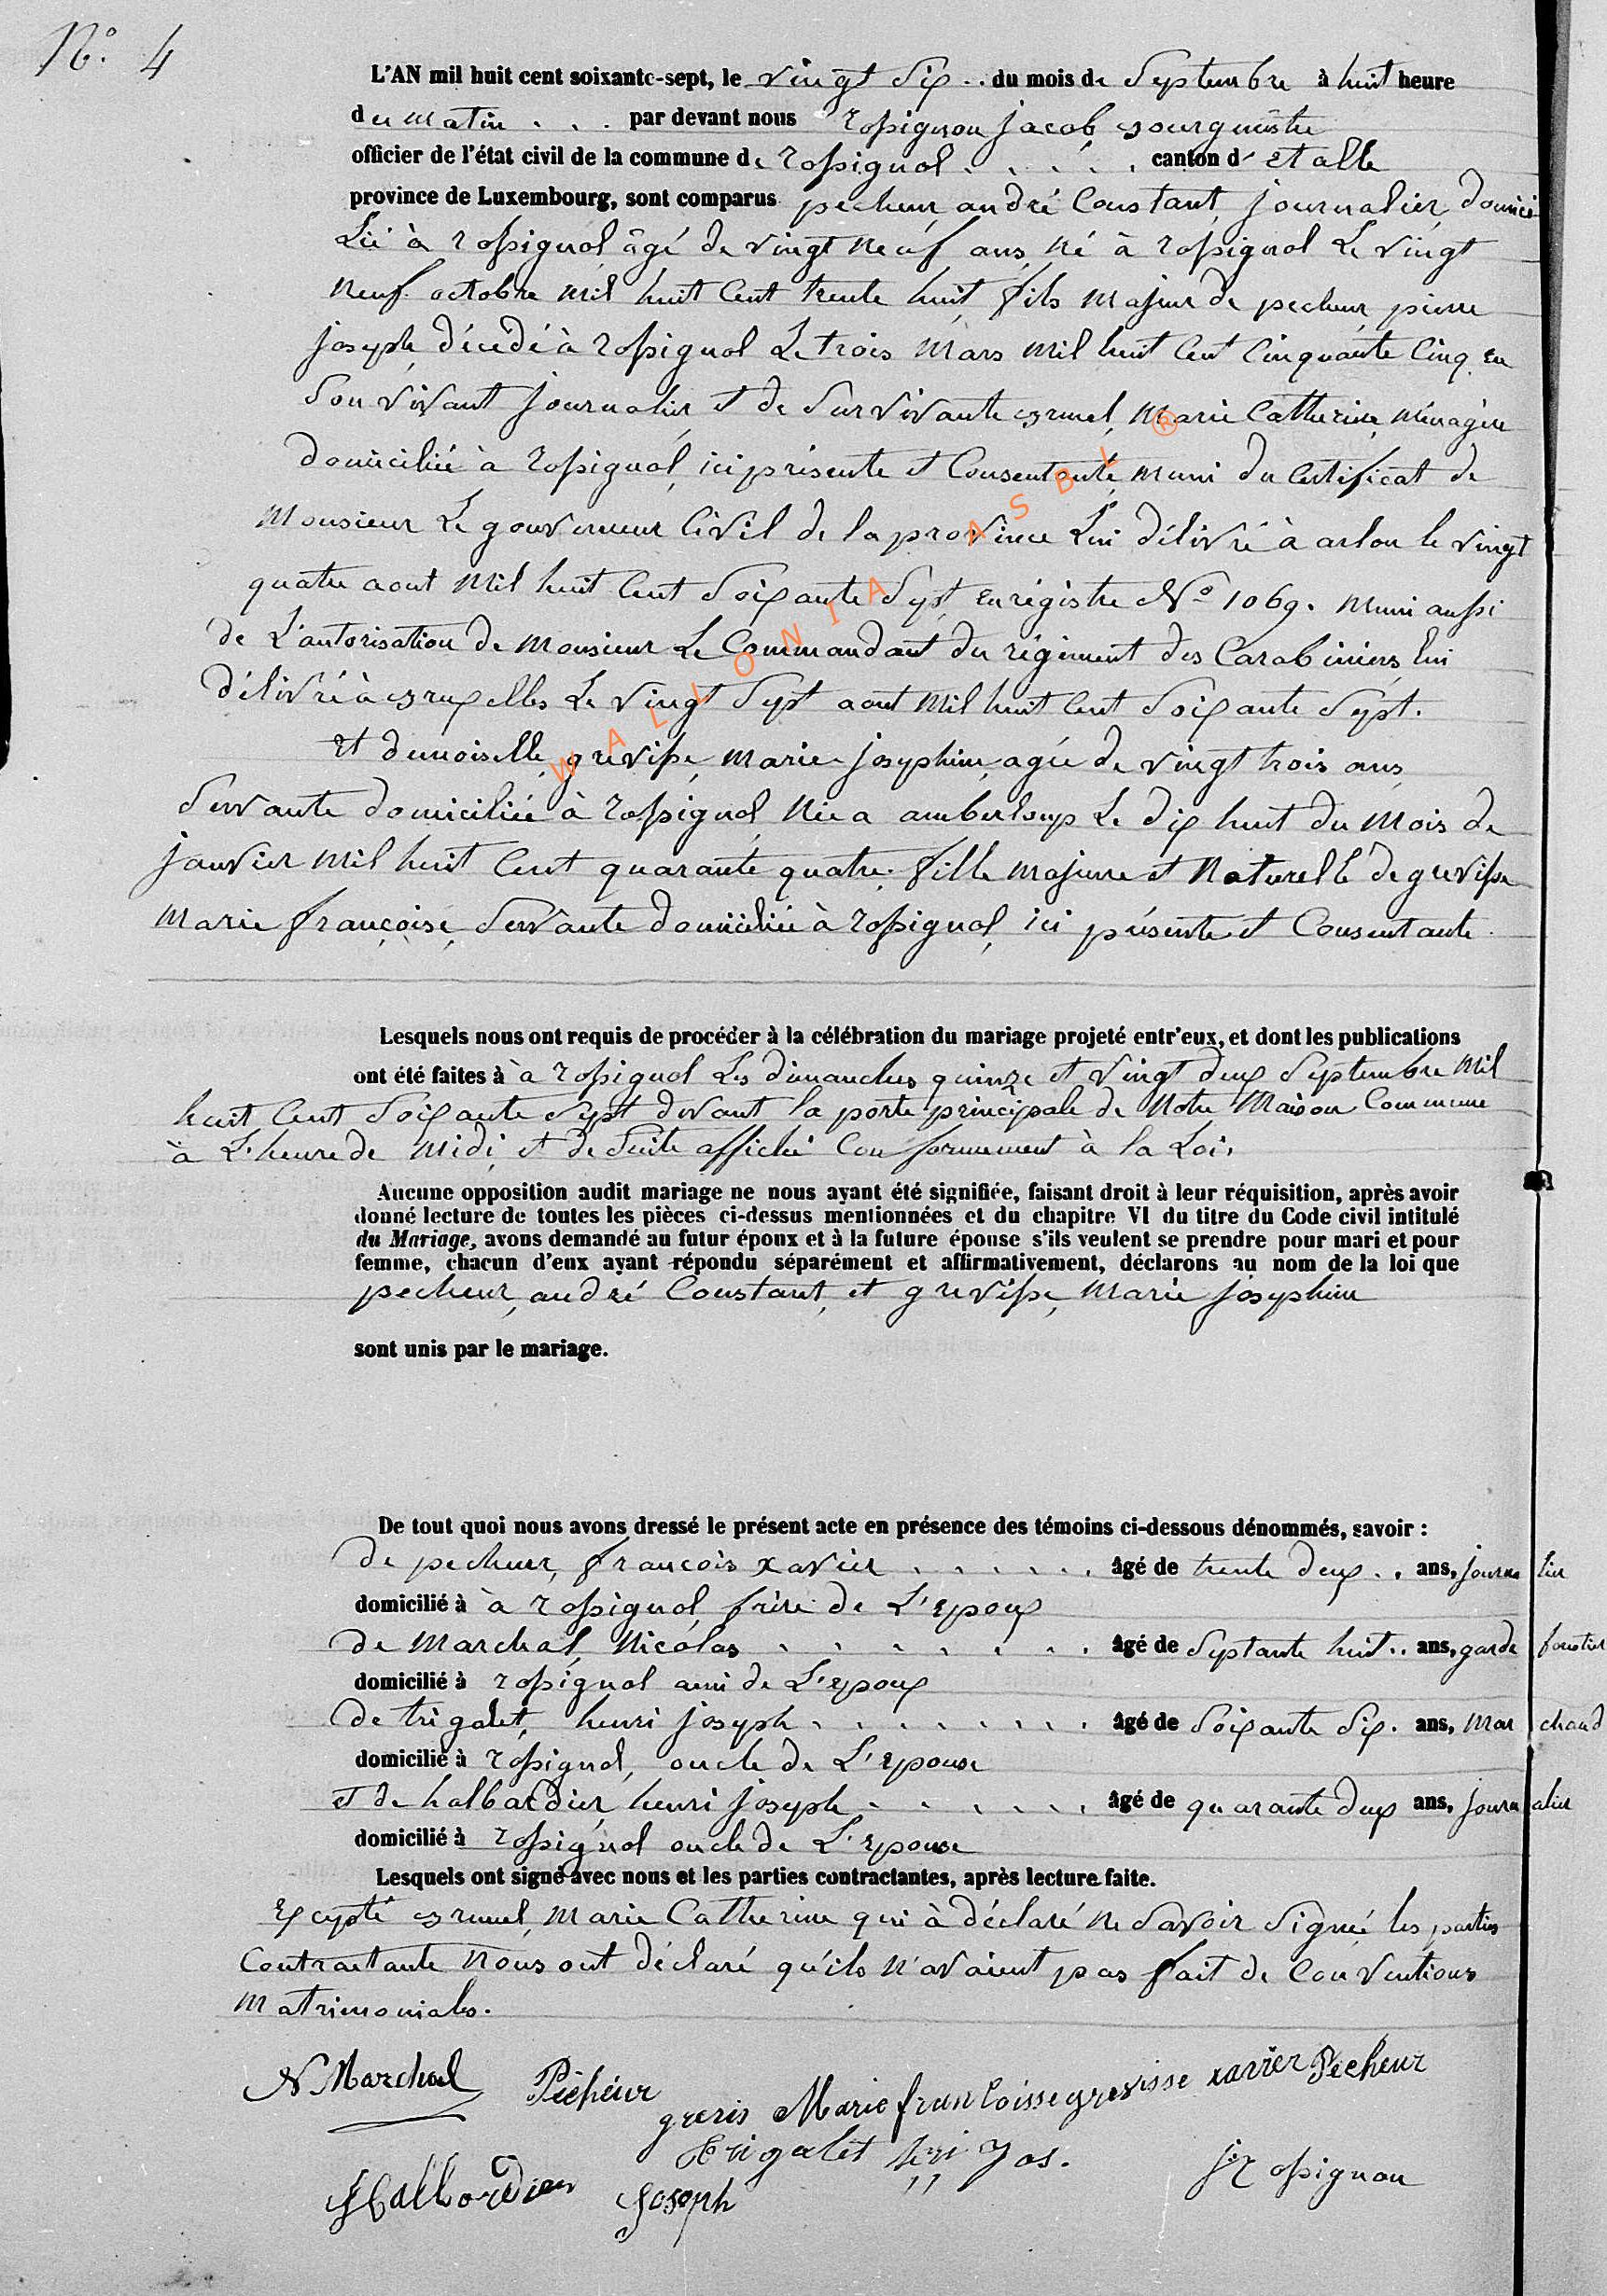 N° 4
L'AN mil huit cent soixante-sept, le vingt six .. du mois de Septembre à huit heure
du matin . . . par devant nous Rossignon jacob bourgmestre
officier de l'état civil de la commune de Rossignol . . . . . canton d' Etalle
province de Luxembourg, sont comparus pecheur andré Constant, journalier, domici
Lié à Rossignol âgé de vingt neuf ans, né à Rossignol Le vingt
neuf octobre mil huit Cent trente huit, fils majeur de pecheur, pierre
joseph, décédé à Rossignol Le trois Mars mil huit Cent Cinquante Cinq en
Son vivant journalier et de Survivante brunel, Marie Catherine, ménagère
domiciliée à Rossignol, ici présente et Consentante, muni du Certificat de
Monsieur Le gouverneur Civil de la province Lui délivré à arlon le vingt
quatre aout Mil huit Cent Soixante Sept enrégistre N° 1069. Muni aussi
de L'autorisation de Monsieur Le Commandant du régiment des Carabiniers, Lui
délivré à bruxelles Le vingt Sept aout Mil huit Cent Soixante Sept.
Et demoiselle, grevisse, Marie josephine, agée de vingt trois ans,
Servante domiciliée à Rossignol Née a amberloup Le dix huit du Mois de
janvier Mil huit Cent quarante quatre. fille majeure et Naturelle de grevisse
Marie françoise, Servante domiciliée à Rossignol, ici présente et Consentante.
Lesquels nous ont requis de procéder à la célébration du mariage projeté entr'eux, et dont les publications
ont été faites à à Rossignol Les dimanches quinze et vingt deux Septembre Mil
huit Cent Soixante Sept devant la porte principale de Notre Maison Commune
à L'heure de Midi, et de Suite affiché Conformement à la Loi.
Aucune opposition audit mariage ne nous ayant été signifiée, faisant droit à leur réquisition, après avoir
donné lecture de toutes les pièces ci-dessus mentionnées et du chapitre VI du titre du Code civil intitulé
du Mariage, avons demandé au futur époux et à la future épouse s'ils veulent se prendre pour mari et pour
femme, chacun d'eux ayant répondu séparément et affirmativement, déclarons au nom de la loi que
pecheur, andré Constant, et grevisse, Marie josephine
sont unis par le mariage.
De tout quoi nous avons dressé le présent acte en présence des témoins ci-dessous dénommés, savoir :
de pecheur, françois xavier . . . . . . âgé de trente deux .. ans, journalier
domicilié à à Rossignol, frère de L'epoux
de Marchal, Nicolas . . . . . . . âgé de Septante huit .. ans, garde forestier
domicilié à Rossignol ami de L'epoux
de trigalet, henri joseph . . . . . . . . âgé de Soixante Six . ans, Marchand
domicilié à Rossignol, oncle de L'epouse
et de halbardier, henri joseph . . . . . . âgé de quarante deux ans, journalier
domicilié à Rossignol oncle de L'epouse
Lesquels ont signé avec nous et les parties contractantes, après lecture faite.
Excepté brunel, Marie Catherine qui à déclaré ne Savoir Signé, les parties
Contractante Nous ont déclaré qu'ils n'avaient pas fait de Conventions
Matrimoniales.
N Marchal Pécheur greris Marie franCoisse grevisse xavier Pecheur
Trigalet hri Jos. J. Rossignon
Halbardier Joseph
WALLONIA ASBL ®